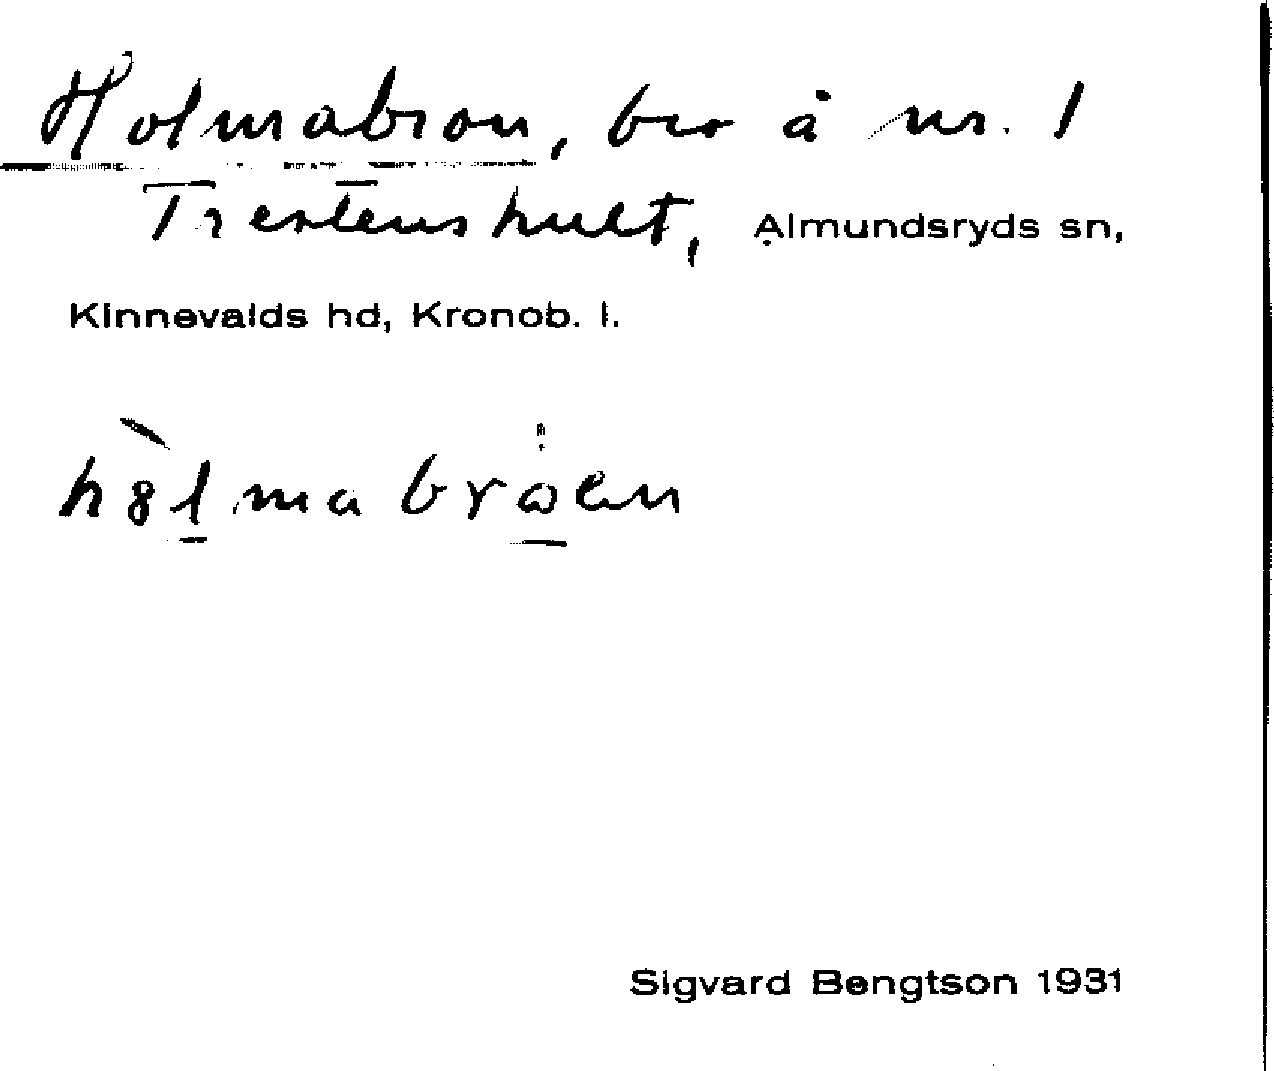 Holmabron, bro å nr. 1
Trestenshult, Almundsryds sn,
Kinnevalds hd, Kronob. l.
Sigvard Bengtson 1931